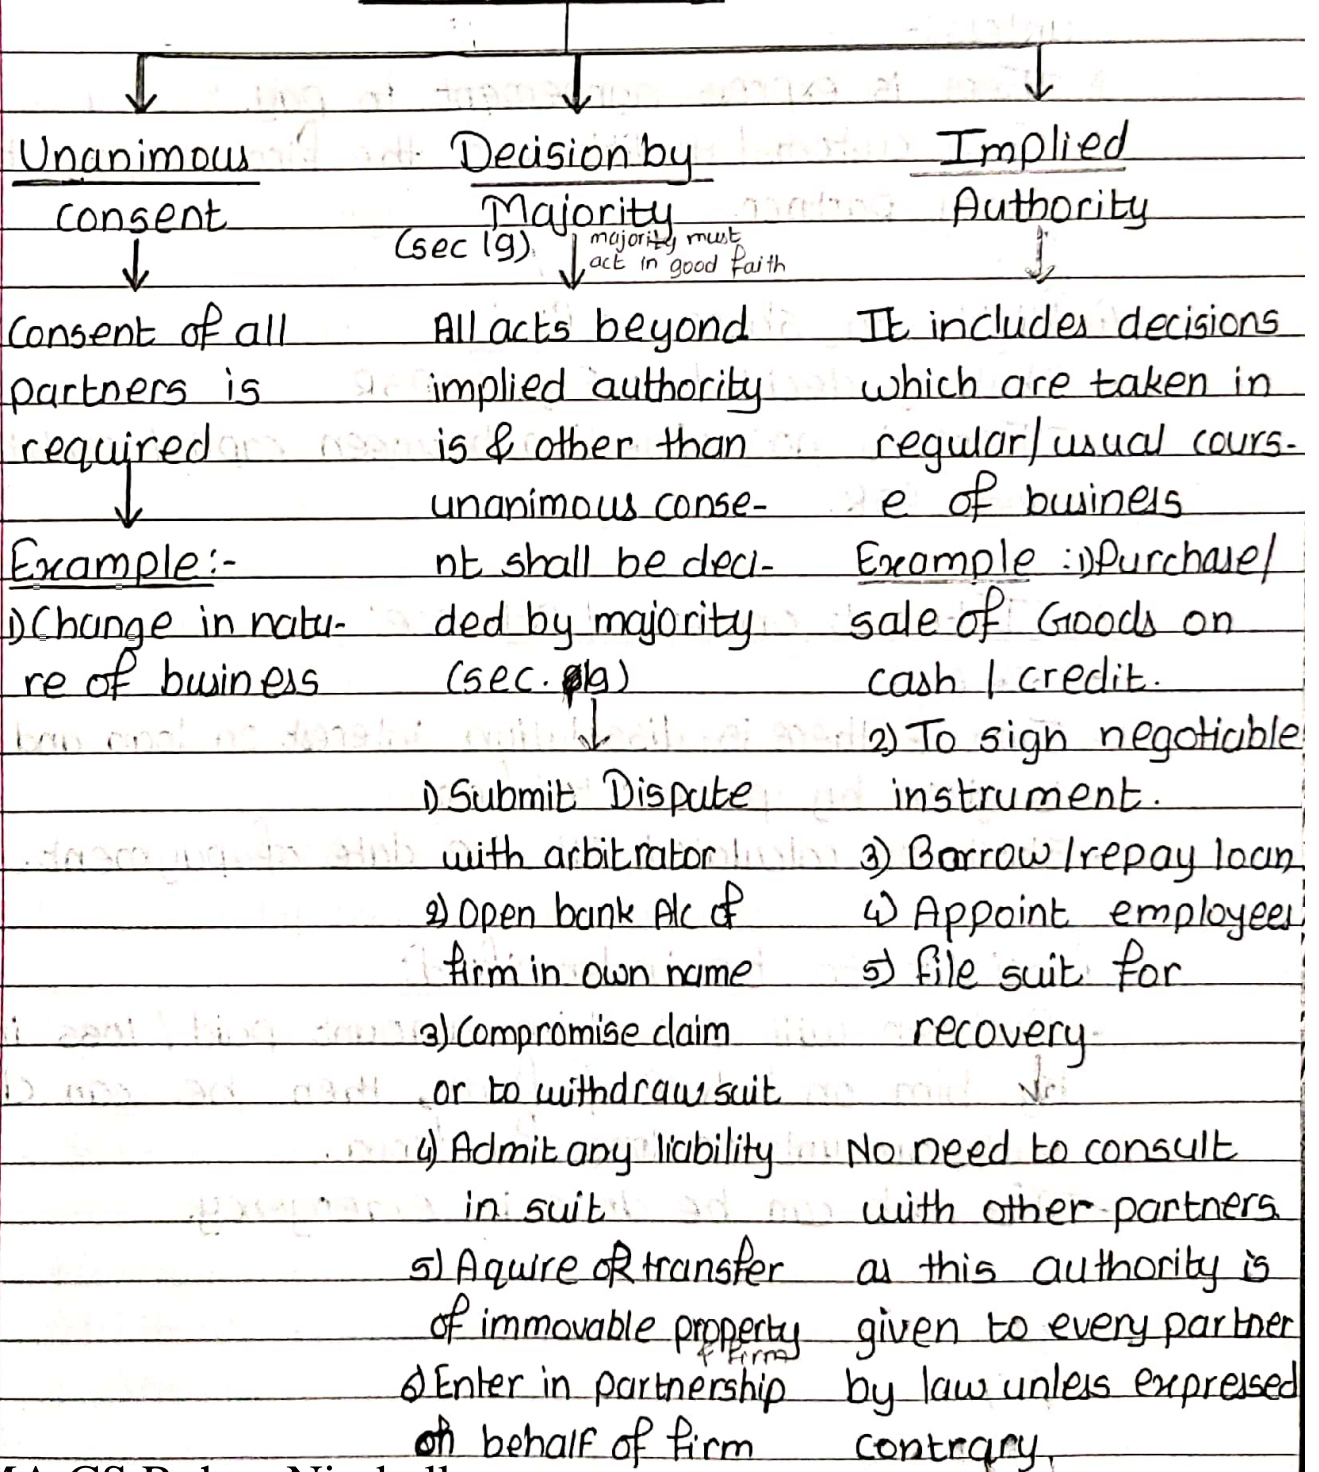 Unanimous
consent
Consent of all
partners is
required
Example:-
1) Change in natu-
re of business
Decision by
Majority
(sec 19)
majority must
act in good faith
All acts beyond
implied authority
is & other than
unanimous conse-
nt shall be deci-
ded by majority
(sec. 19)
1) Submit Dispute
with arbitrator
2) Open bank A/c of
firm in own name
3) Compromise claim
or to withdraw suit
4) Admit any liability
in suit
5) Aquire OR transfer
of immovable property
of firm
6) Enter in partnership
on behalf of firm
Implied
Authority
It includes decisions
which are taken in
regular/usual cours-
e of business
Example :1) Purchase/
sale of Goods on
cash / credit.
2) To sign negotiable
instrument.
3) Borrow/repay loan
4) Appoint employees
5) file suit for
recovery
No need to consult
with other partners
as this authority is
given to every partner
by law unless expressed
contrary